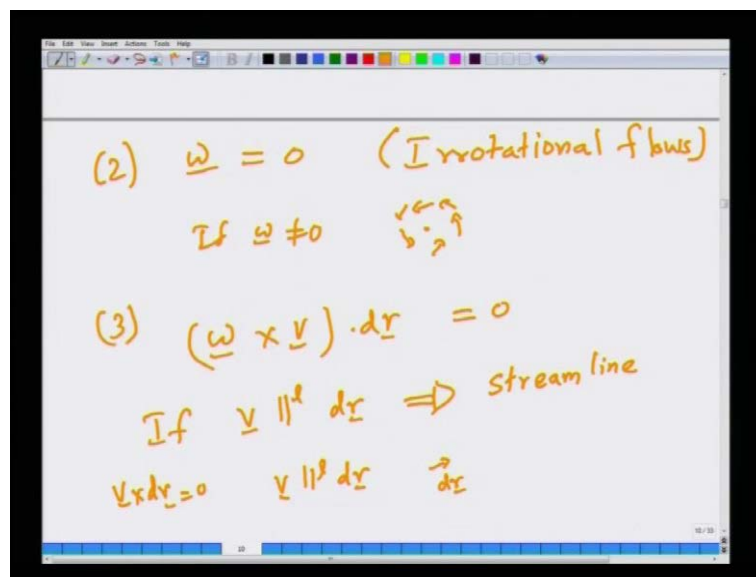 File Edit View Insert Actions Tools Help
B I
(2) ω = 0 (Irrotational flows)
If ω ≠ 0
(3) (ω × v) · dr = 0
If v ||ˡ dr ⇒ streamline
v × dr = 0 v ||ˡ dr dr
10 / 10
10